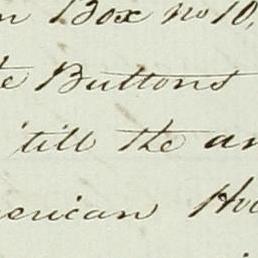 n Box no 10,
e Buttons
'till the an
merican Ho